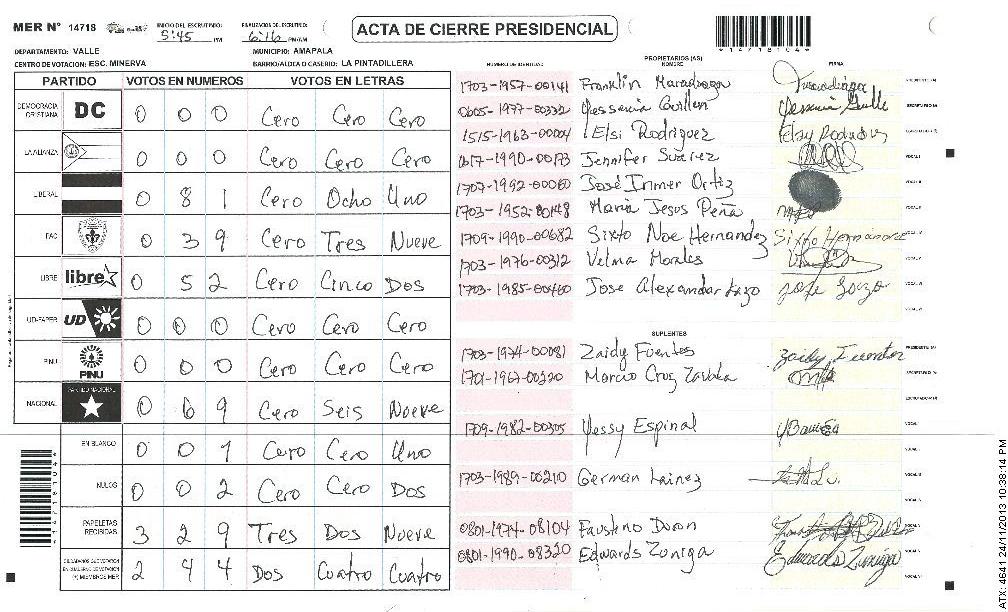 MER Nº 14718
INICIO DEL ESCRUTINIO: 5:45 PM
FINALIZACION DEL ESCRUTINIO: 6:16 PM/AM
ACTA DE CIERRE PRESIDENCIAL
*14718104*
DEPARTAMENTO: VALLE
MUNICIPIO: AMAPALA
CENTRO DE VOTACION: ESC. MINERVA
BARRIO/ALDEA O CASERIO: LA PINTADILLERA
PARTIDO VOTOS EN NUMEROS VOTOS EN LETRAS
DEMOCRACIA CRISTIANA DC 0 0 0 Cero Cero Cero
LA ALIANZA 0 0 0 Cero Cero Cero
LIBERAL 0 8 1 Cero Ocho Uno
PAC 0 3 9 Cero Tres Nueve
LIBRE libre 0 5 2 Cero Cinco Dos
UD-FAPER UD 0 0 0 Cero Cero Cero
PINU PINU 0 0 0 Cero Cero Cero
NACIONAL PARTIDO NACIONAL 0 6 9 Cero Seis Nueve
EN BLANCO 0 0 1 Cero Cero Uno
NULOS 0 0 2 Cero Cero Dos
PAPELETAS RECIBIDAS 3 2 9 Tres Dos Nueve
CIUDADANOS QUE VOTARON EN CUADERNO DE VOTACION (+) MIEMBROS MER 2 4 4 Dos Cuatro Cuatro
PROPIETARIOS (AS)
NUMERO DE IDENTIDAD NOMBRE FIRMA
1703-1957-00141 Franklin Maradiaga
0605-1977-00332 Yessenia Guillen
1515-1963-00004 Elsi Rodriguez
0617-1990-00173 Jennifer Suarez
1707-1992-00060 José Irmer Ortiz
1703-1952-00148 Maria Jesus Peña
1709-1990-00682 Sixto Noe Hernandez Sixto Hernandez
1703-1976-00312 Velma Morales
1703-1985-00460 Jose Alexandar Lazo
SUPLENTES
1703-1974-00081 Zaidy Fuentes
1701-1967-00220 Marcio Cruz Zavala
1709-1982-00305 Yessy Espinal
1703-1989-00210 German Lainez
0801-1974-08104 Faustino Duron
0801-1990-08320 Edwards Zuniga Edwards Zuniga
*14718104*
ATX: 4641 24/11/2013 10:38:14 PM